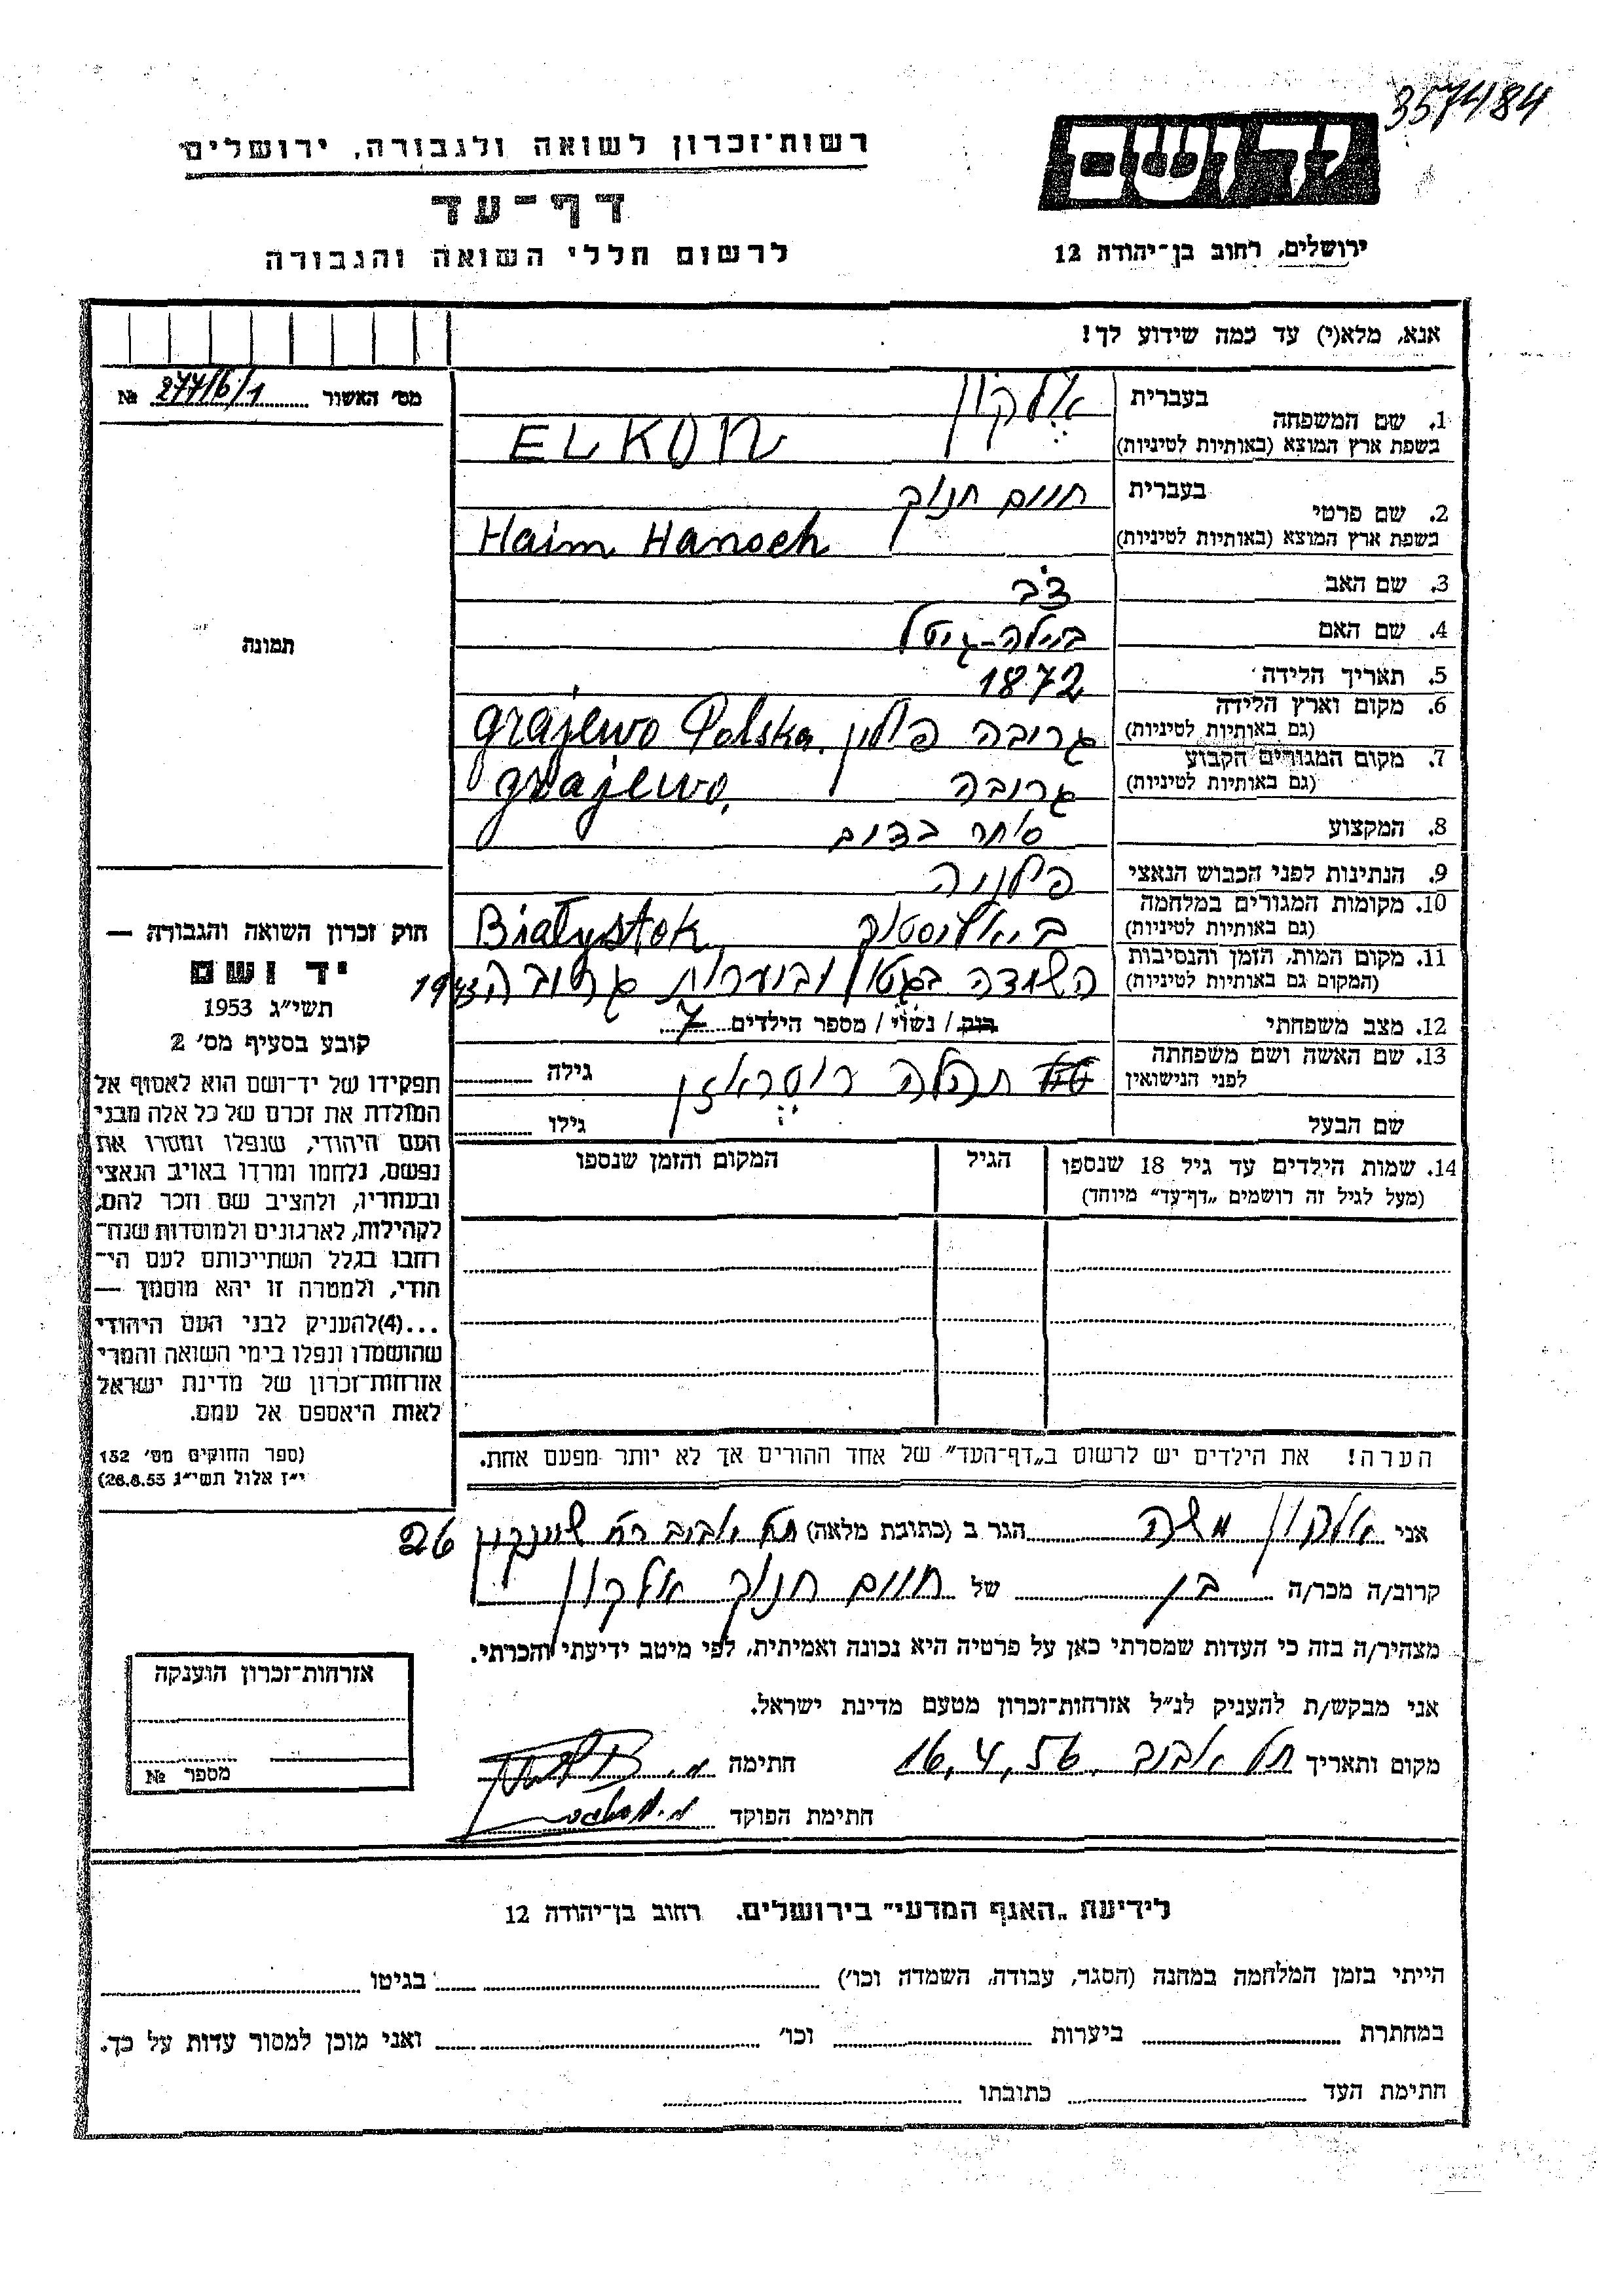 3574184
רשות־זכרון לשואה ולגבורה, ירושלים
יד ושם
דף־עד
לרשום חללי השואה והגבורה
ירושלים, רחוב בן־יהודה 12
אנא, מלא(י) עד כמה שידוע לך!
מס׳ האשור 277/6/1 №
בעברית אלקון
1. שם המשפחה
בשפת ארץ המוצא (באותיות לטיניות) ELKON
בעברית חיים חנוך
2. שם פרטי
בשפת ארץ המוצא (באותיות לטיניות) Haim Hanoch
3. שם האב צבי
4. שם האם ביילה-גיטל
5. תאריך הלידה 1872
6. מקום וארץ הלידה
(גם באותיות לטיניות) גריבה פולין. Grajewo Polska
7. מקום המגורים הקבוע
(גם באותיות לטיניות) גרובה Grajewo,
8. המקצוע סוחר בדים
9. הנתינות לפני הכבוש הנאצי פולניה
10. מקומות המגורים במלחמה
(גם באותיות לטיניות) ביאליסטוק Białystok
11. מקום המות, הזמן והנסיבות
(המקום גם באותיות לטיניות) הושמדה בגטו וביערות גריבה 1943
12. מצב משפחתי רוק / נשוי / מספר הילדים 7
13. שם האשה ושם משפחתה
לפני הנישואין תהלה גילה
שם הבעל גילו
14. שמות הילדים עד גיל 18 שנספו הגיל המקום והזמן שנספו
(מעל לגיל זה רושמים „דף־עד” מיוחד)
הערה! את הילדים יש לרשום ב„דף־העד” של אחד ההורים אך לא יותר מפעם אחת.
תמונה
חוק זכרון השואה והגבורה —
יד ושם
תשי״ג 1953
קובע בסעיף מס׳ 2
תפקידו של יד־ושם הוא לאסוף אל
המולדת את זכרם של כל אלה מבני
העם היהודי, שנפלו ומסרו את
נפשם, נלחמו ומרדו באויב הנאצי
ובעוזריו, ולהציב שם וזכר להם,
לקהילות, לארגונים ולמוסדות שנח־
רחבו בגלל השתייכותם לעם הי־
הודי, ולמטרה זו יהא מוסמך —
...(4)להעניק לבני העם היהודי
שהושמדו ונפלו בימי השואה והמרי
אזרחות־זכרון של מדינת ישראל
לאות היאספם אל עמם.
(ספר החוקים מס׳ 132
י״ז אלול תשי״ג 28.8.53)
אני אלקון משה הגר ב (כתובת מלאה) תל אביב רח 26
קרוב/ה מכר/ה בן של חיים חנוך אלקון
מצהיר/ה בזה כי העדות שמסרתי כאן על פרטיה היא נכונה ואמיתית, לפי מיטב ידיעתי והכרתי.
אני מבקש/ת להעניק לנ״ל אזרחות־זכרון מטעם מדינת ישראל.
מקום ותאריך תל אביב. 16,4,56 חתימה מ.
חתימת הפוקד
אזרחות־זכרון הוענקה
מספר №
לידיעת „האגף המדעי” בירושלים. רחוב בן־יהודה 12
הייתי בזמן המלחמה במחנה (הסגר, עבודה, השמדה וכו׳) בגיטו
במחתרת ביערות וכו׳ ואני מוכן למסור עדות על כך.
חתימת העד כתובתו